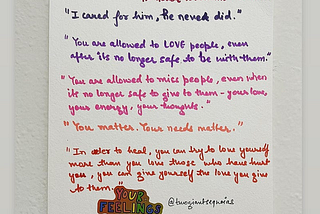 "I cared for him, he never did."
"You are allowed to LOVE people, even
after its no longer safe to be with them."
"You are allowed to miss people, even when
its no longer safe to give to them - your love,
your energy, your thoughts."
"You matter. Your needs matter."
"In order to heal, you can try to love yourself
more than you love those who have hurt
you, you can give yourself the love you give
to them."
YOUR
FEELINGS